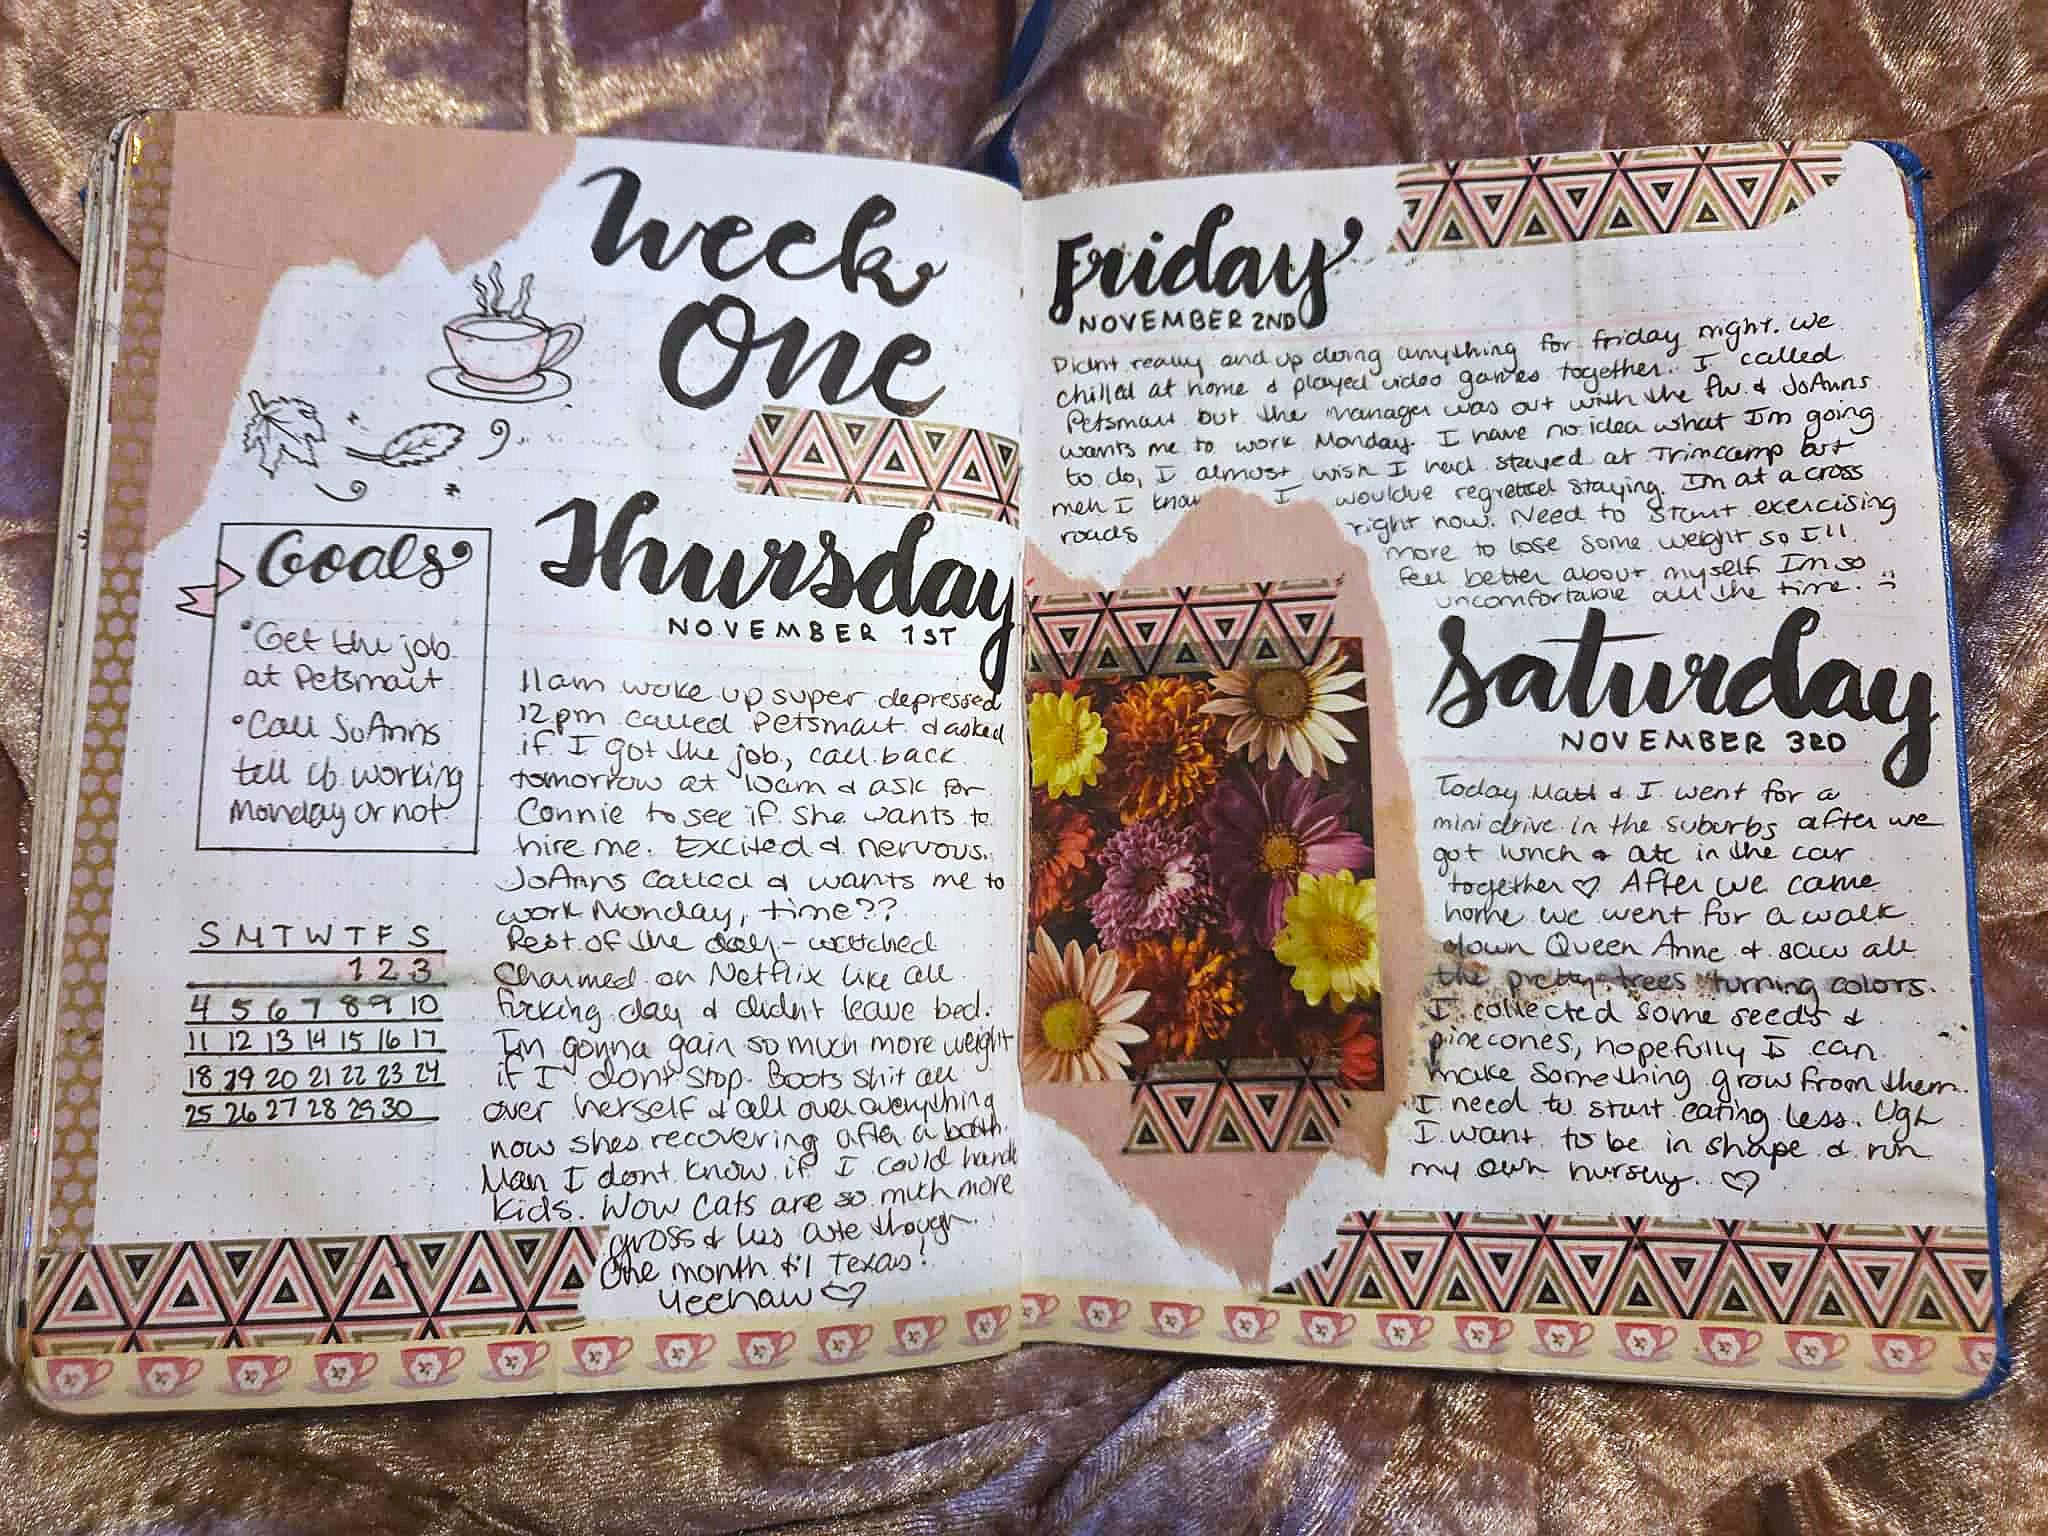 Week
One
Goals
• Get the job
at Petsmart
• Call JoAnns
tell if working
Monday or not
S M T W T F S
1 2 3
4 5 6 7 8 9 10
11 12 13 14 15 16 17
18 19 20 21 22 23 24
25 26 27 28 29 30
Thursday
NOVEMBER 1ST
11am woke up super depressed
12pm called Petsmart & asked
if I got the job, call back
tomorrow at 10am & ask for
Connie to see if she wants to
hire me. Excited & nervous.
JoAnns called & wants me to
work Monday, time??
Rest of the day - watched
Charmed on Netflix like all
fucking day & didnt leave bed.
Im gonna gain so much more weight
if I dont stop. Boots shit all
over herself & all over everything
now shes recovering after a bath.
Man I dont know if I could handle
kids. Wow cats are so much more
gross & less cute though.
One month til Texas!
Yeehaw ♡
Friday
NOVEMBER 2ND
Didnt really end up doing anything for friday night. We
chilled at home & played video games together. I called
Petsmart but the manager was out with the flu & JoAnns
wants me to work Monday. I have no idea what Im going
to do, I almost wish I had stayed at Trimcamp but
meh I know I wouldve regretted staying. Im at a cross
roads right now. Need to start exercising
more to lose some weight so I'll
feel better about myself. Im so
uncomfortable all the time. :(
Saturday
NOVEMBER 3RD
Today Matt & I went for a
mini drive in the suburbs after we
got lunch & ate in the car
together ♡ After we came
home we went for a walk
down Queen Anne & saw all
the pretty trees turning colors.
I collected some seeds &
pinecones, hopefully I can
make something grow from them.
I need to start eating less. Ugh
I want to be in shape & run
my own nursery. ♡